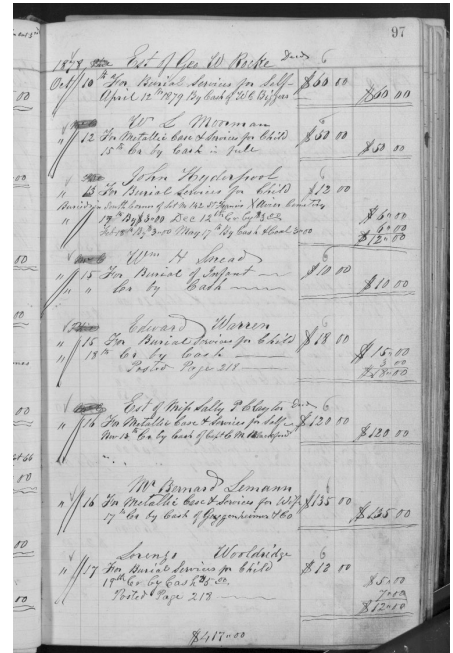 97
1878 Est of Geo W Decd 6
Oct 10th For Burial Services for Self $60 00
April 12th 1879 By Cash of W C Biggers $60 00
W L Moorman
" 12 For Metallic Case & Services for Child $50 00
15th Cr by Cash in full $50 00
John
" 13 For Burial Services for Child $12 00
Buried in South of Lot No 142 St
19th By $3=00 Dec 12th Cr by $3.00 $6=00
By $3=00 May 17th By Cash & Coal 3=00 6=00
$12=00
Wm H Snead 6
" 15 For Burial of Infant $10 00
" " Cr by Cash $10 00
Edward Warren 6
" 15 For Burial Services for Child $18 00
" 18th Cr by Cash $15=00
Posted Page 218 3 00
$18=00
Est of Miss Sally P Claytor Decd 6
" 16 For Metallic Case & Services for Self $120 00
Nov 13th Cr by Cash of Capt C M Blackford $120 00
Mr Bernard Lemann
" 16 For Metallic Case & Services for Wife $135 00
17th Cr by Cash of Guggenheimer & Co $135 00
Lorenzo Wooldridge 6
" 17 For Burial Services for Child $12 00
19th Cr by Cash $5.00 $5=00
Posted Page 218 7=00
$12=00
$417=00